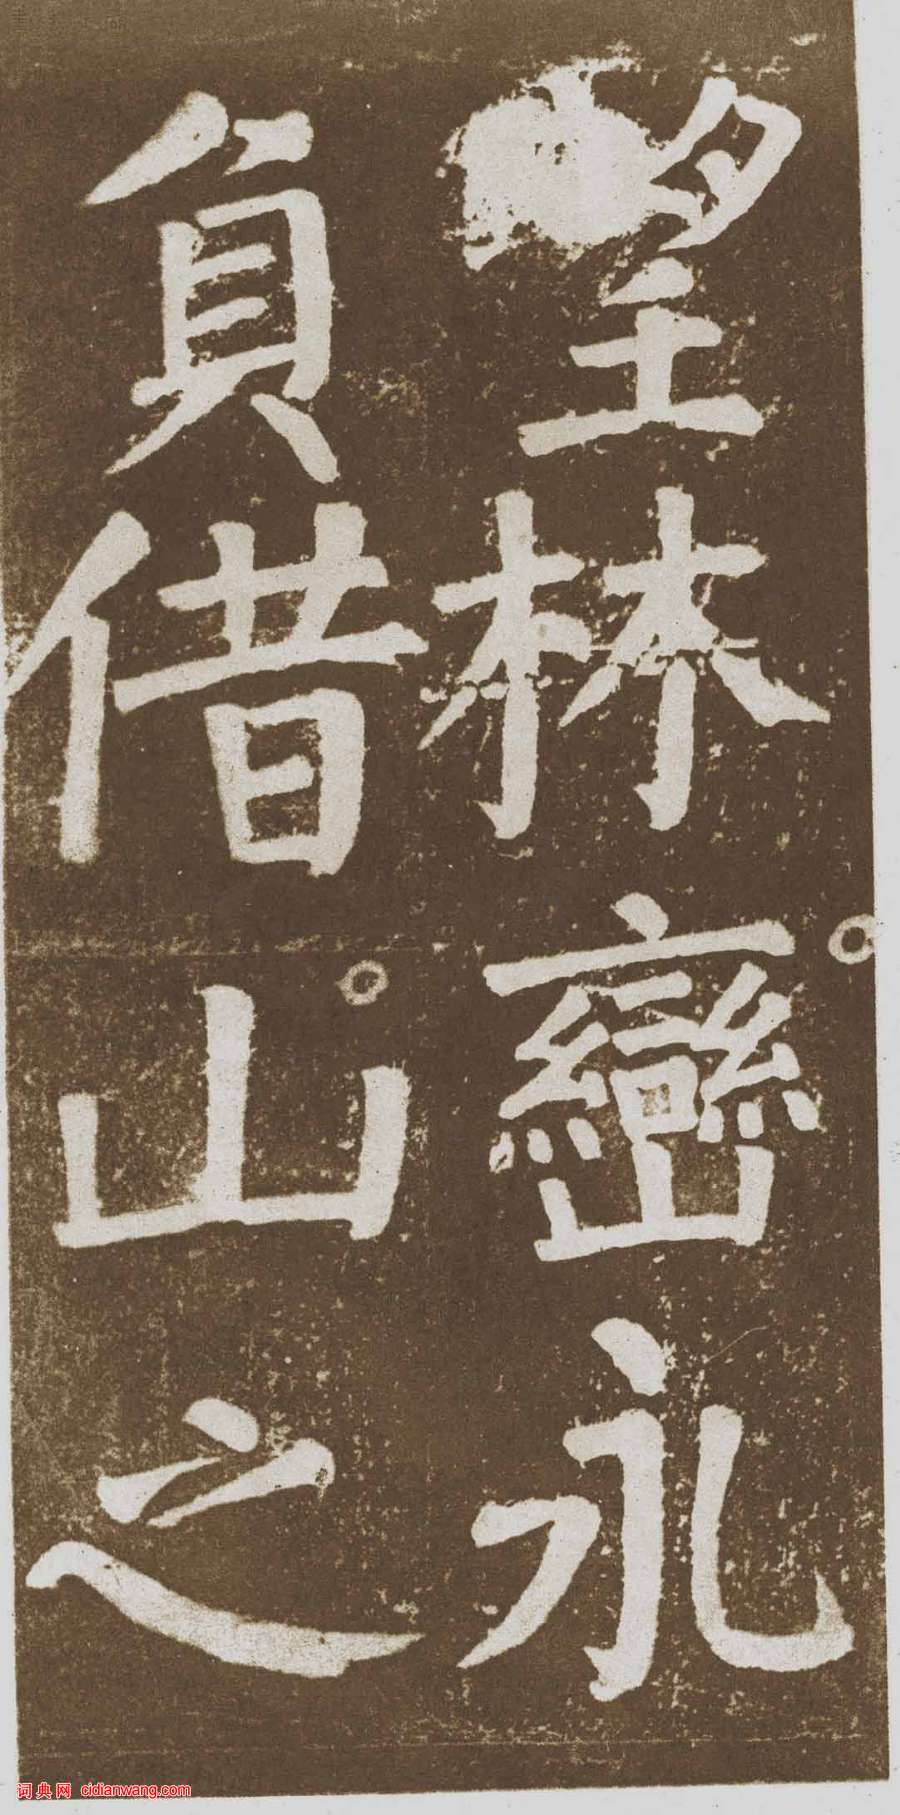 望林巒永
負借山之
词典网 cidianwang.com